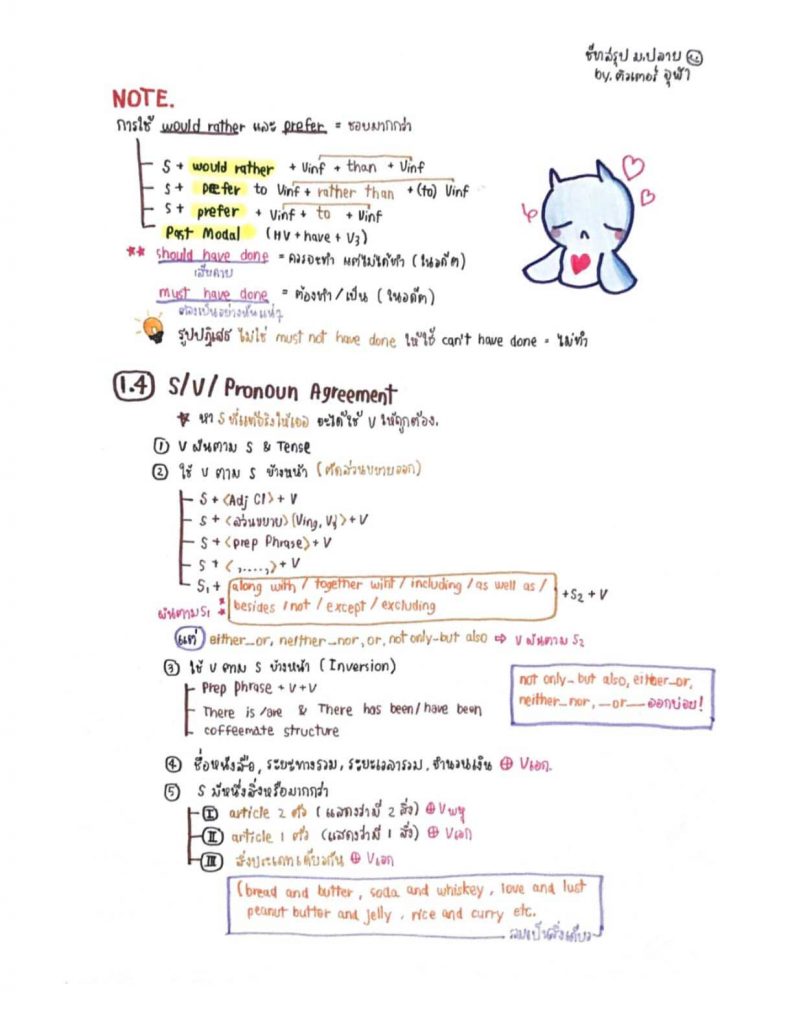 ชีทสรุป ม.ปลาย
by. ติวเตอร์ จุฬา
NOTE.
การใช้ would rather และ prefer = ชอบมากกว่า
S + would rather + Vinf + than + Vinf
S + prefer to Vinf + rather than + (to) Vinf
S + prefer + Vinf + to + Vinf
Past Modal (HV + have + V3)
** should have done = ควรจะทำ แต่ไม่ได้ทำ (ในอดีต)
เสียดาย
must have done = ต้องทำ/เป็น (ในอดีต)
ต้องเป็นอย่างนั้นแน่ๆ
รูปปฏิเสธ ไม่ใช่ must not have done ให้ใช้ can't have done = ไม่ทำ
1.4 S/V/ Pronoun Agreement
★ หา S ที่แท้จริงให้เจอ จะได้ใช้ V ให้ถูกต้อง.
① V ผันตาม S & Tense
② ใช้ V ตาม S ข้างหน้า (ตัดส่วนขยายออก)
S + <Adj Cl> + V
S + <ส่วนขยาย> (Ving, V3) + V
S + <prep Phrase> + V
S + < ,....., > + V
S1 + along with / together wiht / including / as well as /
besides / not / except / excluding
+ S2 + V
ผันตาม S1
แต่ either_or, neither_nor, or, not only-but also ⇒ V ผันตาม S2
③ ใช้ V ตาม S ข้างหน้า (Inversion)
Prep phrase + V + V
There is /are & There has been/ have been
coffeemate structure
not only- but also, either_or,
neither_nor, _or_ ออกบ่อย!
④ ชื่อหนังสือ, ระยะทางรวม, ระยะเวลารวม, จำนวนเงิน ⊕ Vเอก.
⑤ S มีหนึ่งสิ่งหรือมากกว่า
I article 2 ตัว (แสดงว่ามี 2 สิ่ง) ⊕ Vพหู
II article 1 ตัว (แสดงว่ามี 1 สิ่ง) ⊕ Vเอก
III สิ่งประเภทเดียวกัน ⊕ Vเอก
(bread and butter, soda and whiskey, love and lust
peanut butter and jelly, rice and curry etc.
รวมเป็นสิ่งเดียว